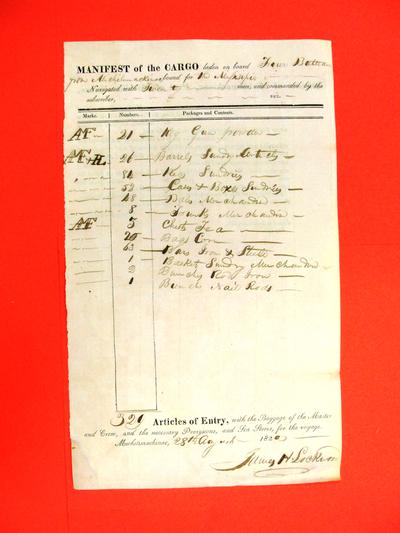 MANIFEST of the CARGO laden on board Four Batteau
from Michilimackinac bound for the Mississippi
Navigated with Twenty men, and commanded by the
subscriber, VIZ.
Marks. Numbers. Packages and Contents.
AF 21 Kegs Gun powder
AF+HL 26 Barrels Sundry
Kegs Sundries
52 Cases & Boxes Sundries
48 Bales Merchandise
8 Trunks Merchandise
AF 5 Chests Tea
Bags Corn
63 Bars Iron & Steele
1 Basket Sundry Merchandise
2 Bunches Rod Iron
1 Bunch Nail Rods
321 Articles of Entry, with the Baggage of the Master
and Crew, and the necessary Provisions, and Sea Stores, for the voyage
Michilimackinac, 28th August 1820
James H Lockwood